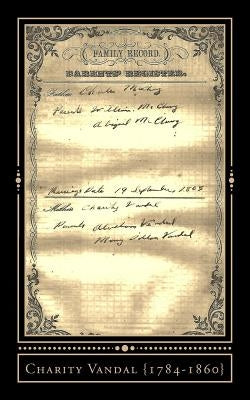 FAMILY RECORD.
PARENTS' REGISTER.
Father
Parents William McClung
Abigail McClung
Marriage Date 19 September, 1805
Mother Charity Vandal
Parents Abraham Vandal
Mary Vandal
CHARITY VANDAL {1784-1860}